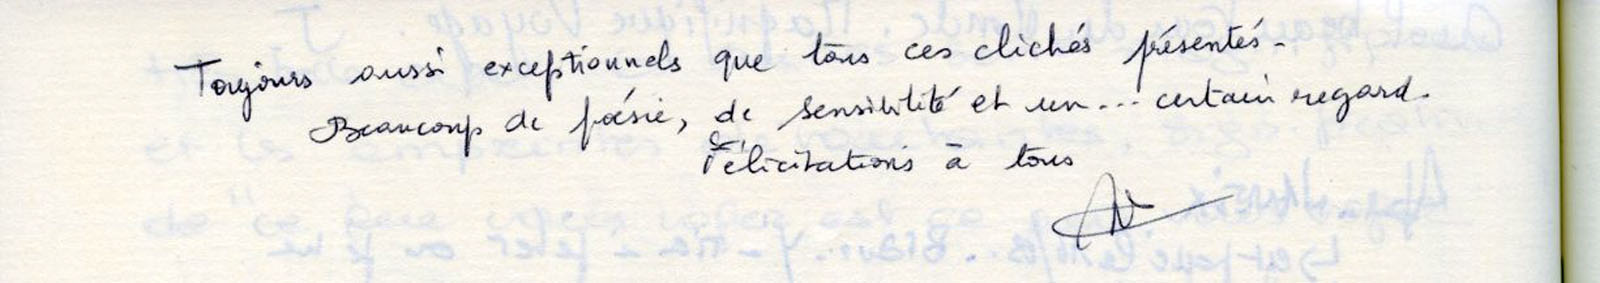 Toujours aussi exceptionnels que tous ces clichés présentés.
Beaucoup de poésie, de sensibilité et un... certain regard.
Félicitations à tous